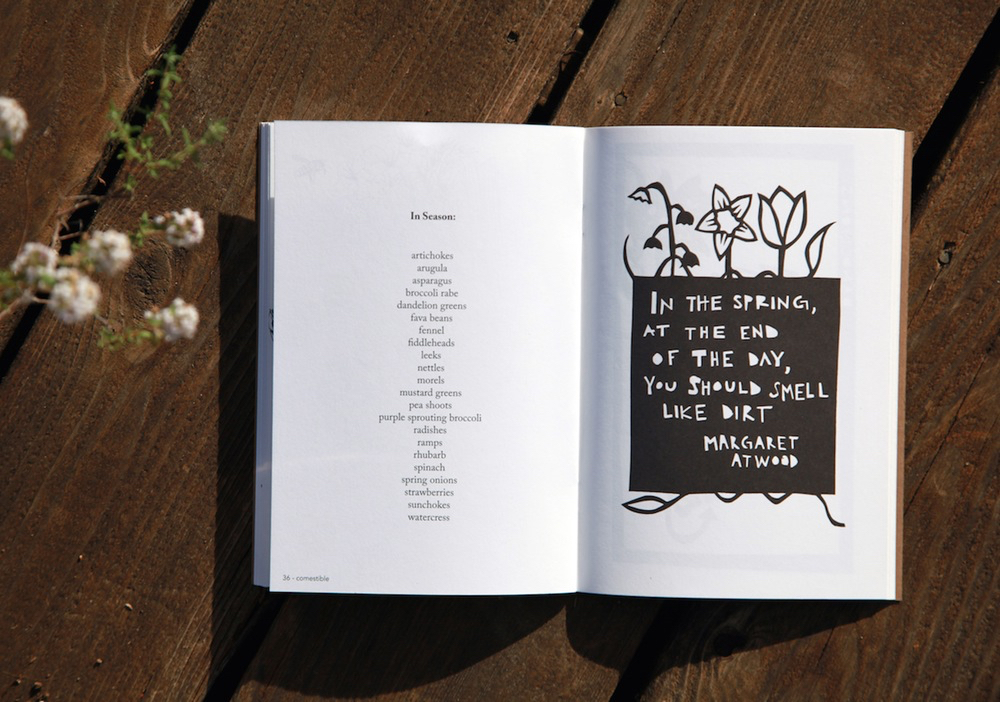 In Season:
artichokes
arugula
asparagus
broccoli rabe
dandelion greens
fava beans
fennel
fiddleheads
leeks
nettles
morels
mustard greens
pea shoots
purple sprouting broccoli
radishes
ramps
rhubarb
spinach
spring onions
strawberries
sunchokes
watercress
36 - comestible
IN THE SPRING,
AT THE END
OF THE DAY,
YOU SHOULD SMELL
LIKE DIRT
MARGARET
ATWOOD